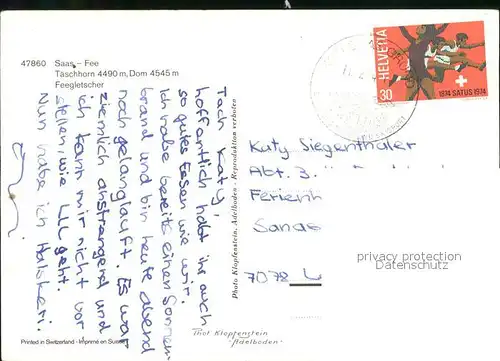 47860 Saas - Fee
Täschhorn 4490 m, Dom 4545 m
Feegletscher
Tach Katy,
hoffentlich habt ihr auch
so gutes Essen wie wir.
Ich habe bereits einen Sonnen
brand und bin heute abend
noch gelanglauft. Es war
ziemlich anstrengend und
ich kann mir nicht vor
stellen wie geht.
Nun habe ich
Printed in Switzerland - Imprimé en Suisse
Photo Klopfenstein, Adelboden - Reproduktion verboten
HELVETIA
30
1874 SATUS 1974
Katy Siegenthaler
Abt. 3.
Ferienh
Sanas
7078 L
privacy protection
Datenschutz
Phot Klopfenstein
Adelboden